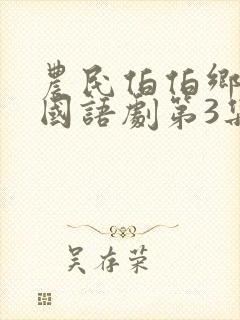 農民伯伯鄉
國語劇第3集
吴存荣